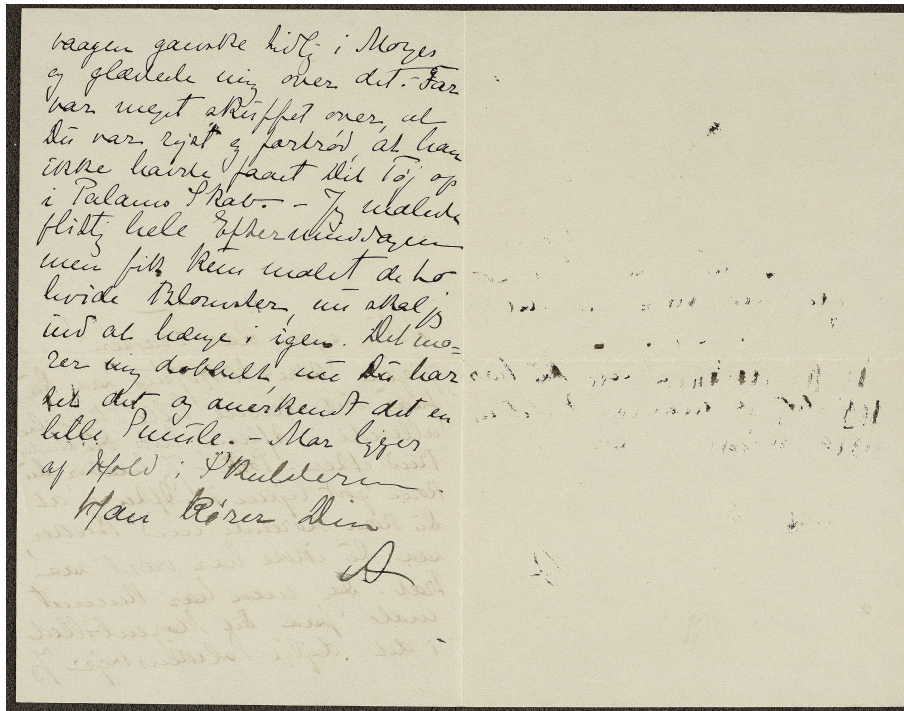 vaagen ganske tidlig i Morges
og glædede mig over det. - Far
var meget skuffet over, at
Du var rejst og fortrød, at han
ikke havde faaet Dit Tøj op
i Palamo Skab. - Jeg malede
flittig hele Eftermiddagen
men fik kun malet de to
hvide Blomster, nu skal jeg
ind at hænge i igen. Det mo=
rer mig dobbelt nu Du har
set det og anerkendt det en
lille Smule. - Mor ligger
af Hold i Skulderen
Han kører Din
A